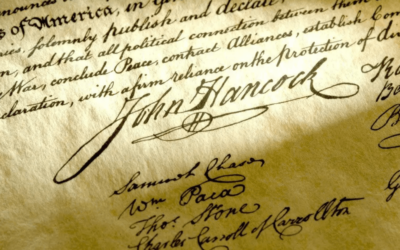 nounces
s of America, in
solemnly publish and declare
n, and that all political connection between them
War, conclude Peace, contract Alliances, establish Com
claration, with a firm reliance on the protection of div
John Hancock
Samuel Chase
Wm Paca
Thos Stone
Charles Carroll of Carrollton